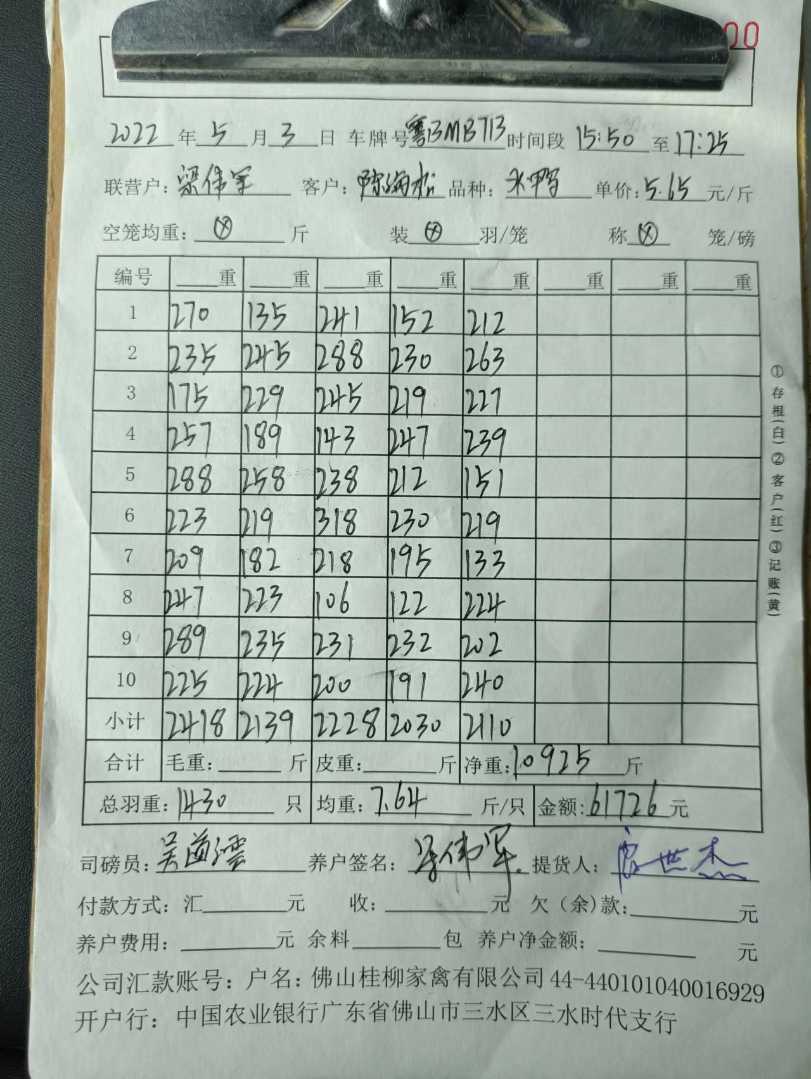 00
2022 年 5 月 3 日 车牌号 粤BMB713 时间段 15:50 至 17:25
联营户: 梁伟军 客户: 陈海松 品种: 水鸭 单价: 5.65 元/斤
空笼均重: 斤 装 羽/笼 称 笼/磅
编号 重 重 重 重 重 重 重 重
1 270 135 241 152 212
2 235 245 288 230 263
3 175 229 245 219 227
4 257 189 143 247 239
5 288 258 238 212 151
6 223 219 318 230 219
7 209 182 218 195 133
8 247 223 106 122 224
9 289 235 231 232 202
10 225 224 200 191 240
小计 2418 2139 2228 2030 2110
合计 毛重: 斤 皮重: 斤 净重: 10925 斤
总羽重: 1430 只 均重: 7.64 斤/只 金额: 61726 元
司磅员: 吴 养户签名: 梁伟军. 提货人: 世杰
付款方式: 汇 元 收: 元 欠(余)款: 元
养户费用: 元 余料 包 养户净金额: 元
公司汇款账号: 户名: 佛山桂柳家禽有限公司 44-440101040016929
开户行: 中国农业银行广东省佛山市三水区三水时代支行
①存根(白)②客户(红)③记账(黄)